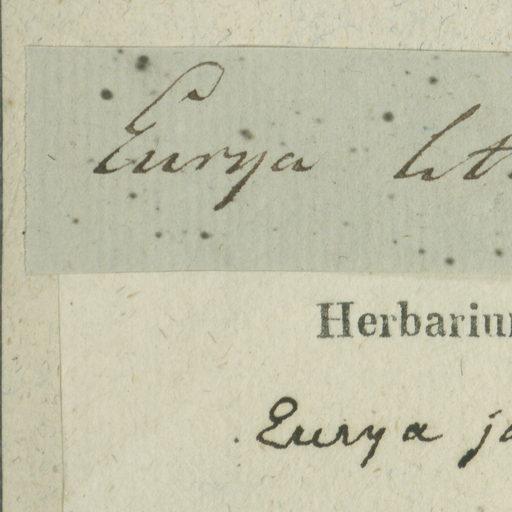 Eurya
Herbariu
Eurya ja